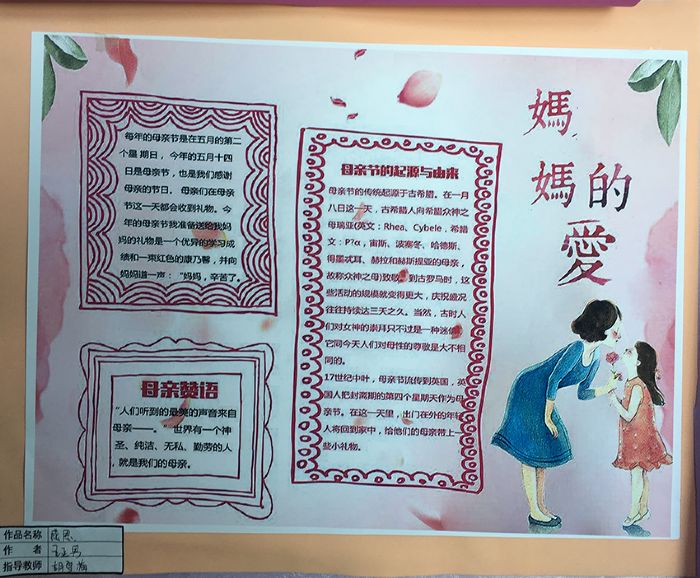 媽
媽的
愛
每年的母亲节是在五月的第二
个星期日，今年的五月十四
日是母亲节，也是我们感谢
母亲的节日，母亲们在母亲
节这一天都会收到礼物。今
年的母亲节我准备送给我妈
妈的礼物是一个优异的学习成
绩和一束红色的康乃馨，并向
妈妈道一声：“妈妈，辛苦了。
母亲节的起源与由来
母亲节的传统起源于古希腊。在一月
八日这一天，古希腊人向希腊众神之
母瑞亚(英文：Rhea, Cybele，希腊
文：Ρ?α，宙斯、波塞冬、哈德斯、
得墨忒耳、赫拉和赫斯提亚的母亲，
故称众神之母)致敬。到古罗马时，这
些活动的规模就变得更大，庆祝盛况
往往持续达三天之久。当然，古时人
们对女神的崇拜只不过是一种迷信，
它同今天人们对母性的尊敬是大不相
同的。
17世纪中叶，母亲节流传到英国，英
国人把封斋期的第四个星期天作为母
亲节。在这一天里，出门在外的年轻
人将回到家中，给他们的母亲带上一
些小礼物。
母亲赞语
“人们听到的最美的声音来自
母亲——。 世界有一个神
圣、纯洁、无私、勤劳的人
，就是我们的母亲。
作品名称
作 者
指导教师